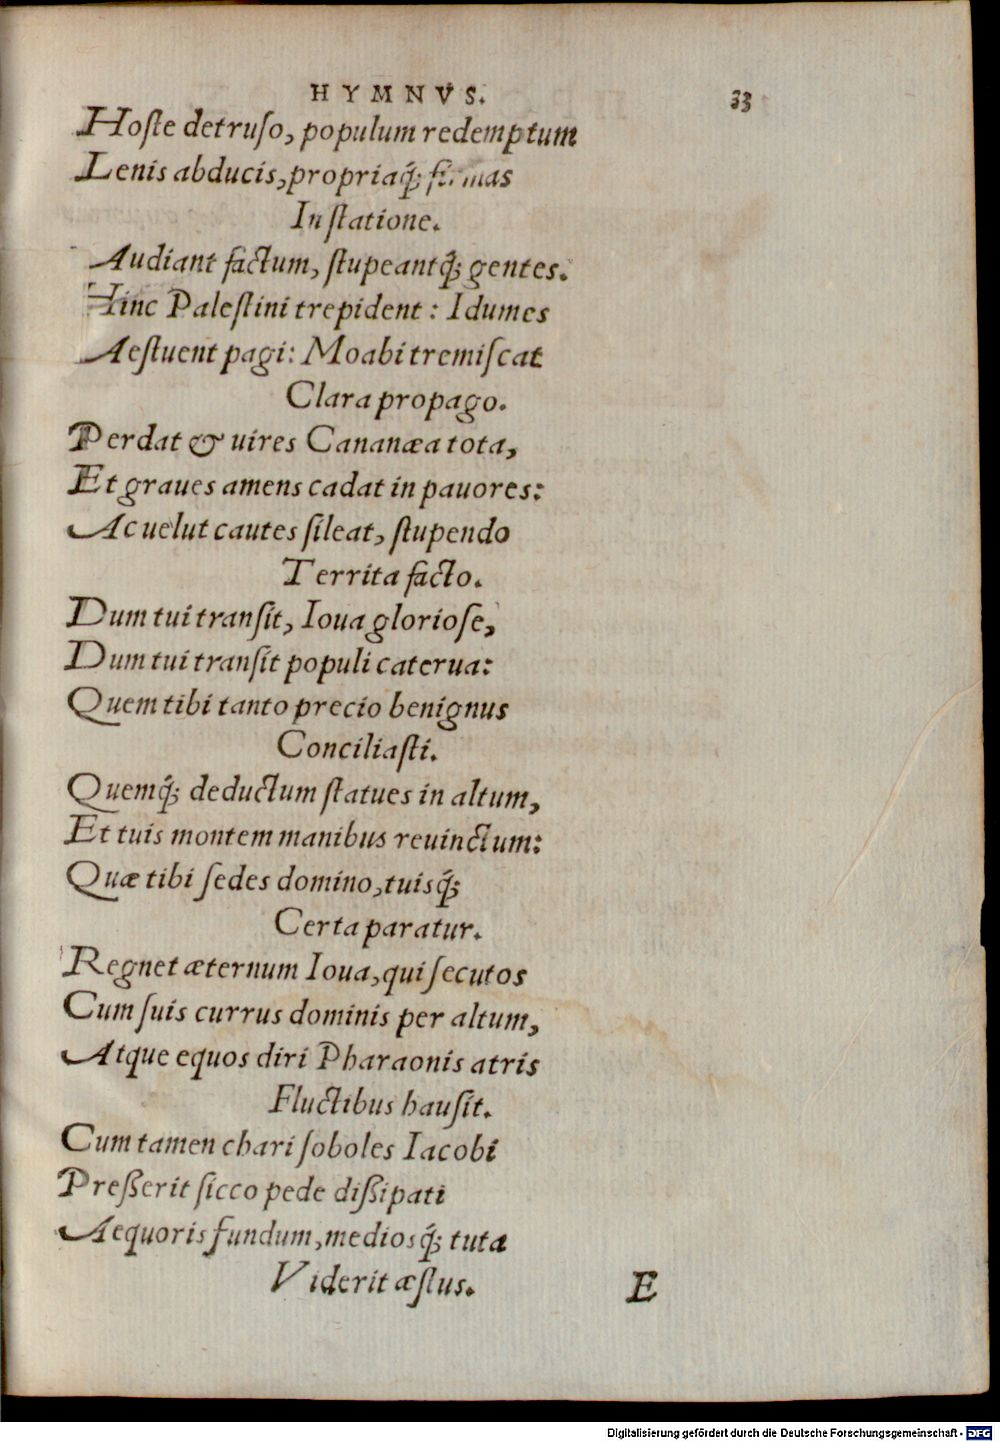 HYMNVS. 33
Hoſte detruſo, populum redemptum
Lenis abducis, propriaq́; firmas
In ſtatione.
Audiant factum, ſtupeantq́; gentes.
Hinc Paleſtini trepident: Idumes
Aeſtuent pagi: Moabi tremiſcat
Clara propago.
Perdat & uires Cananæa tota,
Et graues amens cadat in pauores:
Ac uelut cautes ſileat, ſtupendo
Territa facto.
Dum tui tranſit, Ioua glorioſe,
Dum tui tranſit populi caterua:
Quem tibi tanto precio benignus
Conciliaſti.
Quemq́; deductum ſtatues in altum,
Et tuis montem manibus reuinctum:
Quæ tibi ſedes domino, tuisq́;
Certa paratur.
Regnet æternum Ioua, qui ſecutos
Cum ſuis currus dominis per altum,
Atque equos diri Pharaonis atris
Fluctibus hauſit.
Cum tamen chari ſoboles Iacobi
Preßerit ſicco pede dißipati
Aequoris fundum, mediosq́; tuta
Viderit æſtus. E
Digitalisierung gefördert durch die Deutsche Forschungsgemeinschaft - DFG